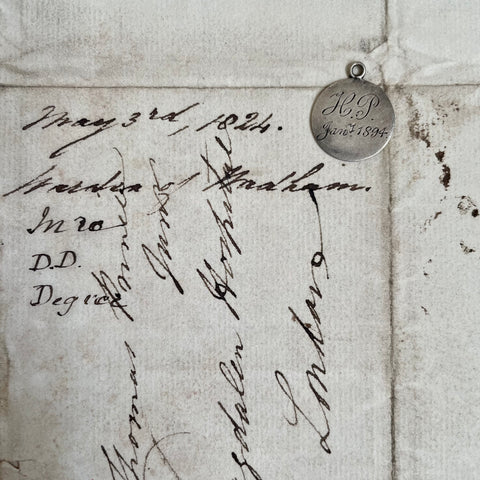 May 3rd, 1824.
Warden of Wadham.
In re
D.D.
Degree
Thomas
Junr
Magdalen Hospital
London
H.P.
Jany 1894